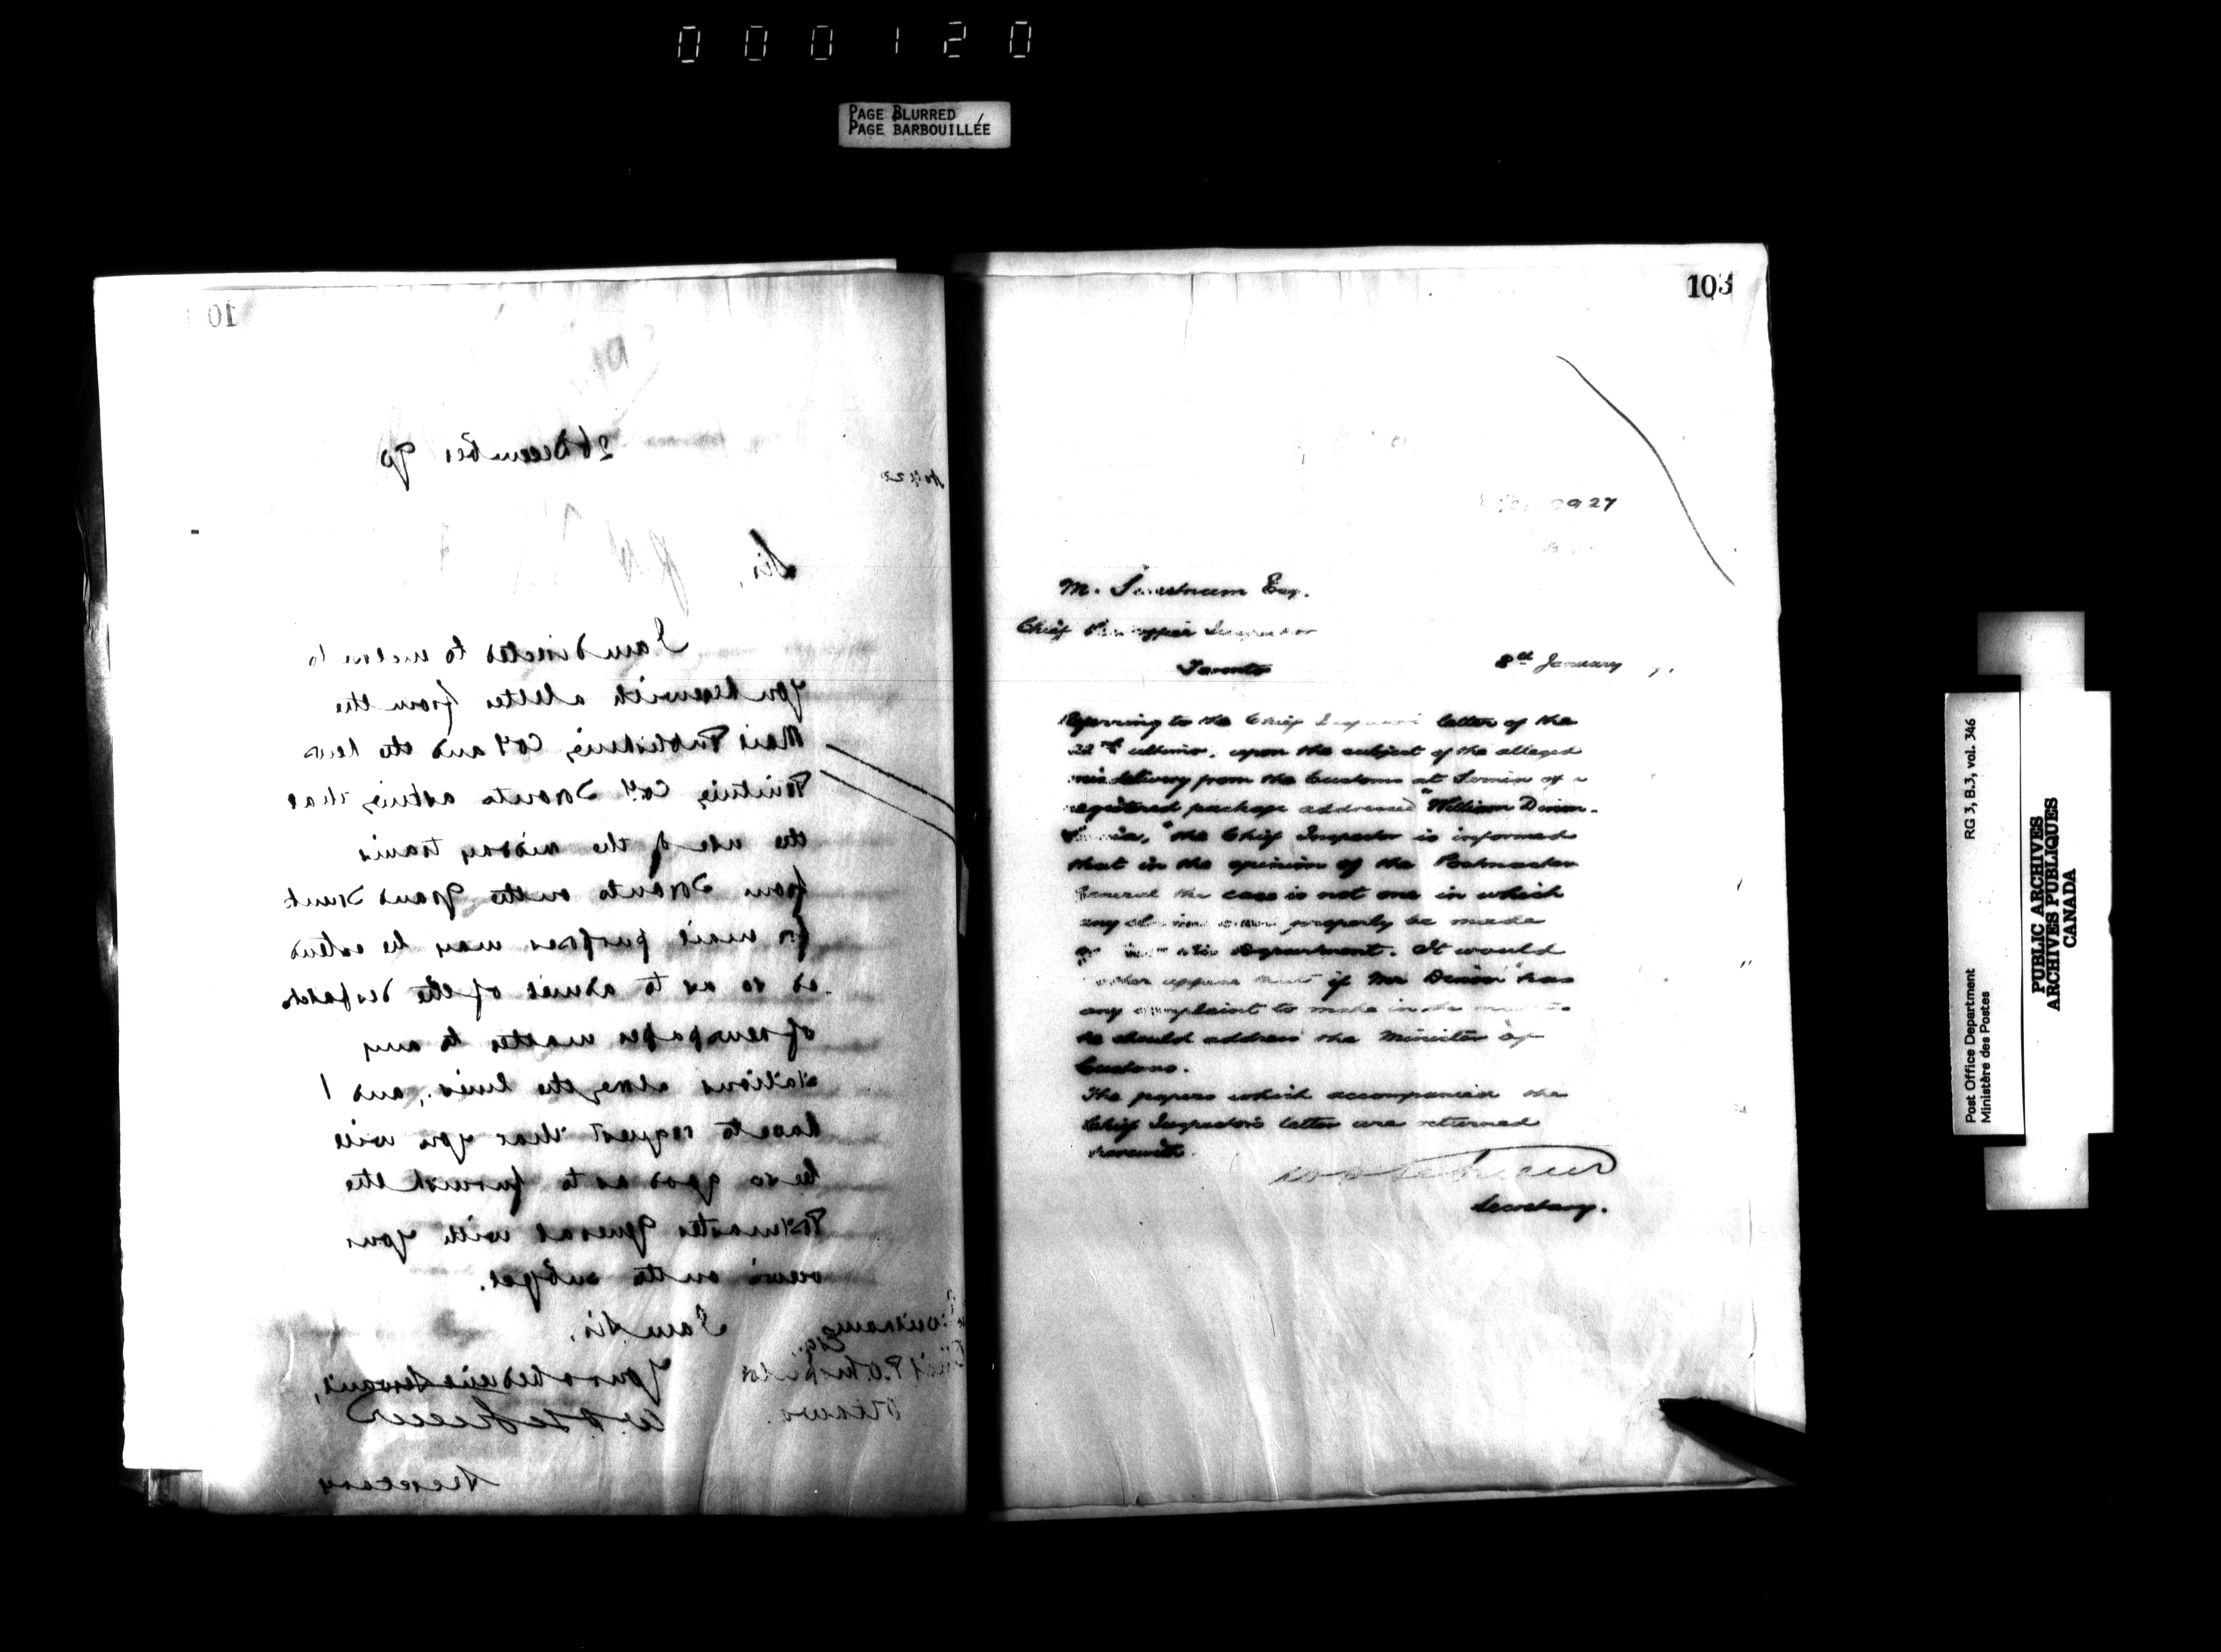 000120
PAGE BLURRED
PAGE BARBOUILLÉE
10
26 December 90
Sir,
I am directed to enclose to
you herewith a letter from the
Mail Publishing Coy and the News
Printing Coy Toronto asking that
the use of the midday trains
from Toronto on the Grand Trunk
for mail purposes may be extend
-ed so as to admit of the despatch
of newspaper matter to any
stations along the lines, and I
have to request that you will
be so good as to furnish the
Postmaster General with your
views on the subject.
I am Sir,
Your obedient Servant,
Secretary
Esq.
Chief P.O. Inspector
Ottawa.
103
927
M. Esq.
Chief Inspector
Toronto
8th January
Referring to the Chief letter of the
22nd ultimo, upon the subject of the alleged
mis delivery from the Customs at of a
registered package addressed "William
the Chief Inspector is informed
that in the opinion of the Postmaster
General the case is not one in which
any properly be made
Department. It would
if Mr has
any complaint to make in the
he should address the Minister of
Customs.
The papers which accompanied the
Chief Inspector's letter are returned
herewith.
Secretary.
Post Office Department
Ministère des Postes
RG 3, B.3, vol. 346
PUBLIC ARCHIVES
ARCHIVES PUBLIQUES
CANADA